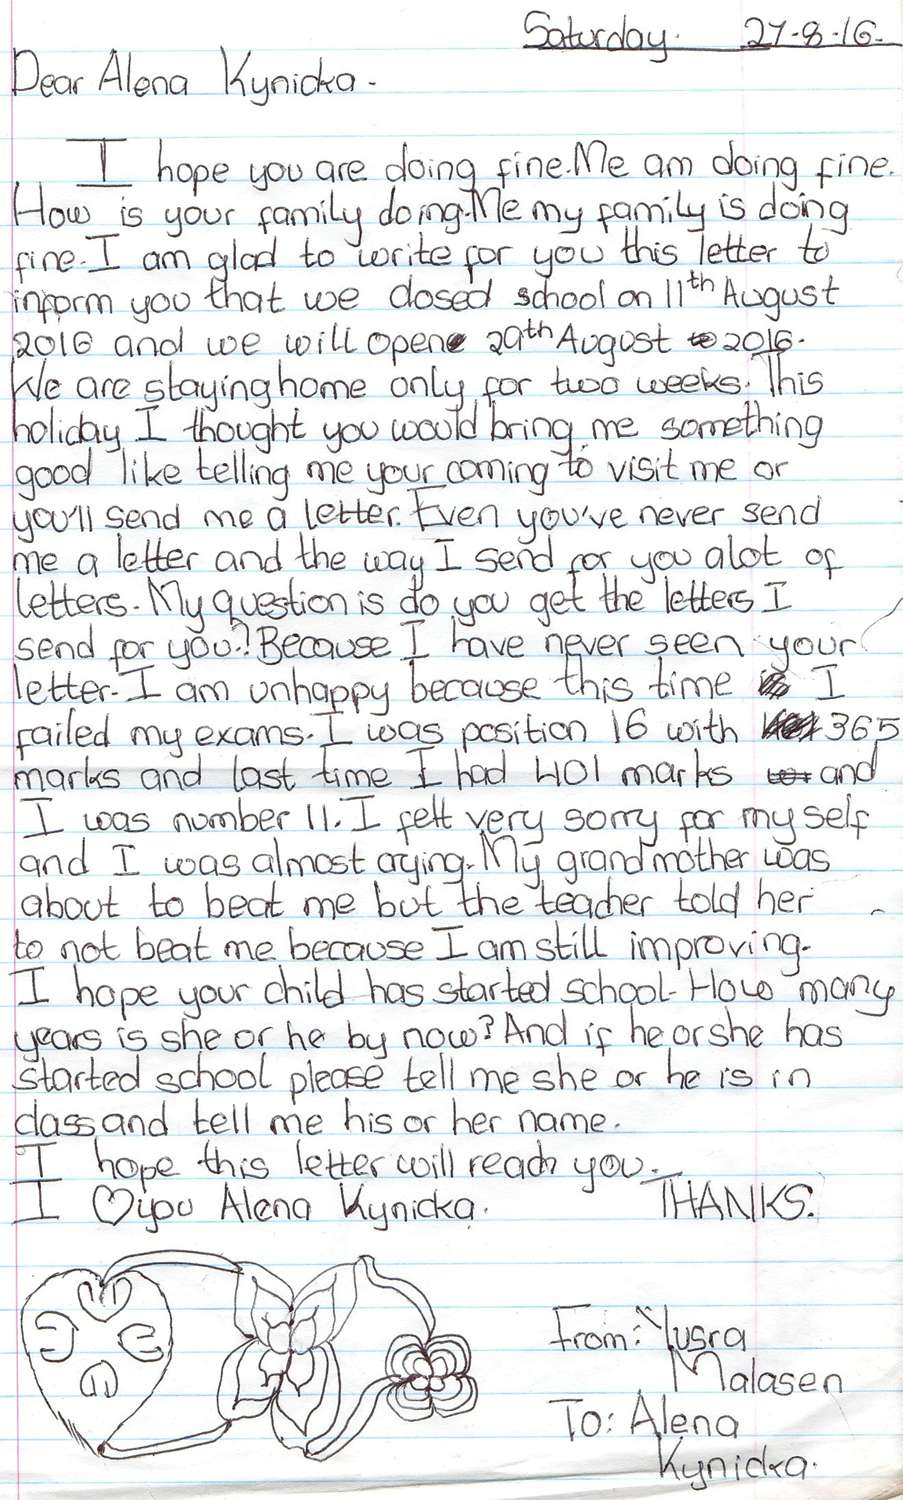 Saturday. 27-8-16.
Dear Alena Kynicka.
I hope you are doing fine. Me am doing fine.
How is your family doing. Me my family is doing
fine. I am glad to write for you this letter to
inform you that we closed school on 11th August
2016 and we will open 29th August 2016.
We are staying home only for two weeks. This
holiday I thought you would bring me something
good like telling me your coming to visit me or
you'll send me a letter. Even you've never send
me a letter and the way I send for you alot of
letters. My question is do you get the letters I
send for you? Because I have never seen your
letter. I am unhappy because this time I
failed my exams. I was position 16 with 365
marks and last time I had 401 marks and
I was number 11. I felt very sorry for my self
and I was almost crying. My grandmother was
about to beat me but the teacher told her
to not beat me because I am still improving.
I hope your child has started school. How many
years is she or he by now? And if he or she has
started school please tell me she or he is in
class and tell me his or her name.
I hope this letter will reach you.
I ♡ you Alena Kynicka. THANKS.
From: Yusra
Malasen
To: Alena
Kynicka.